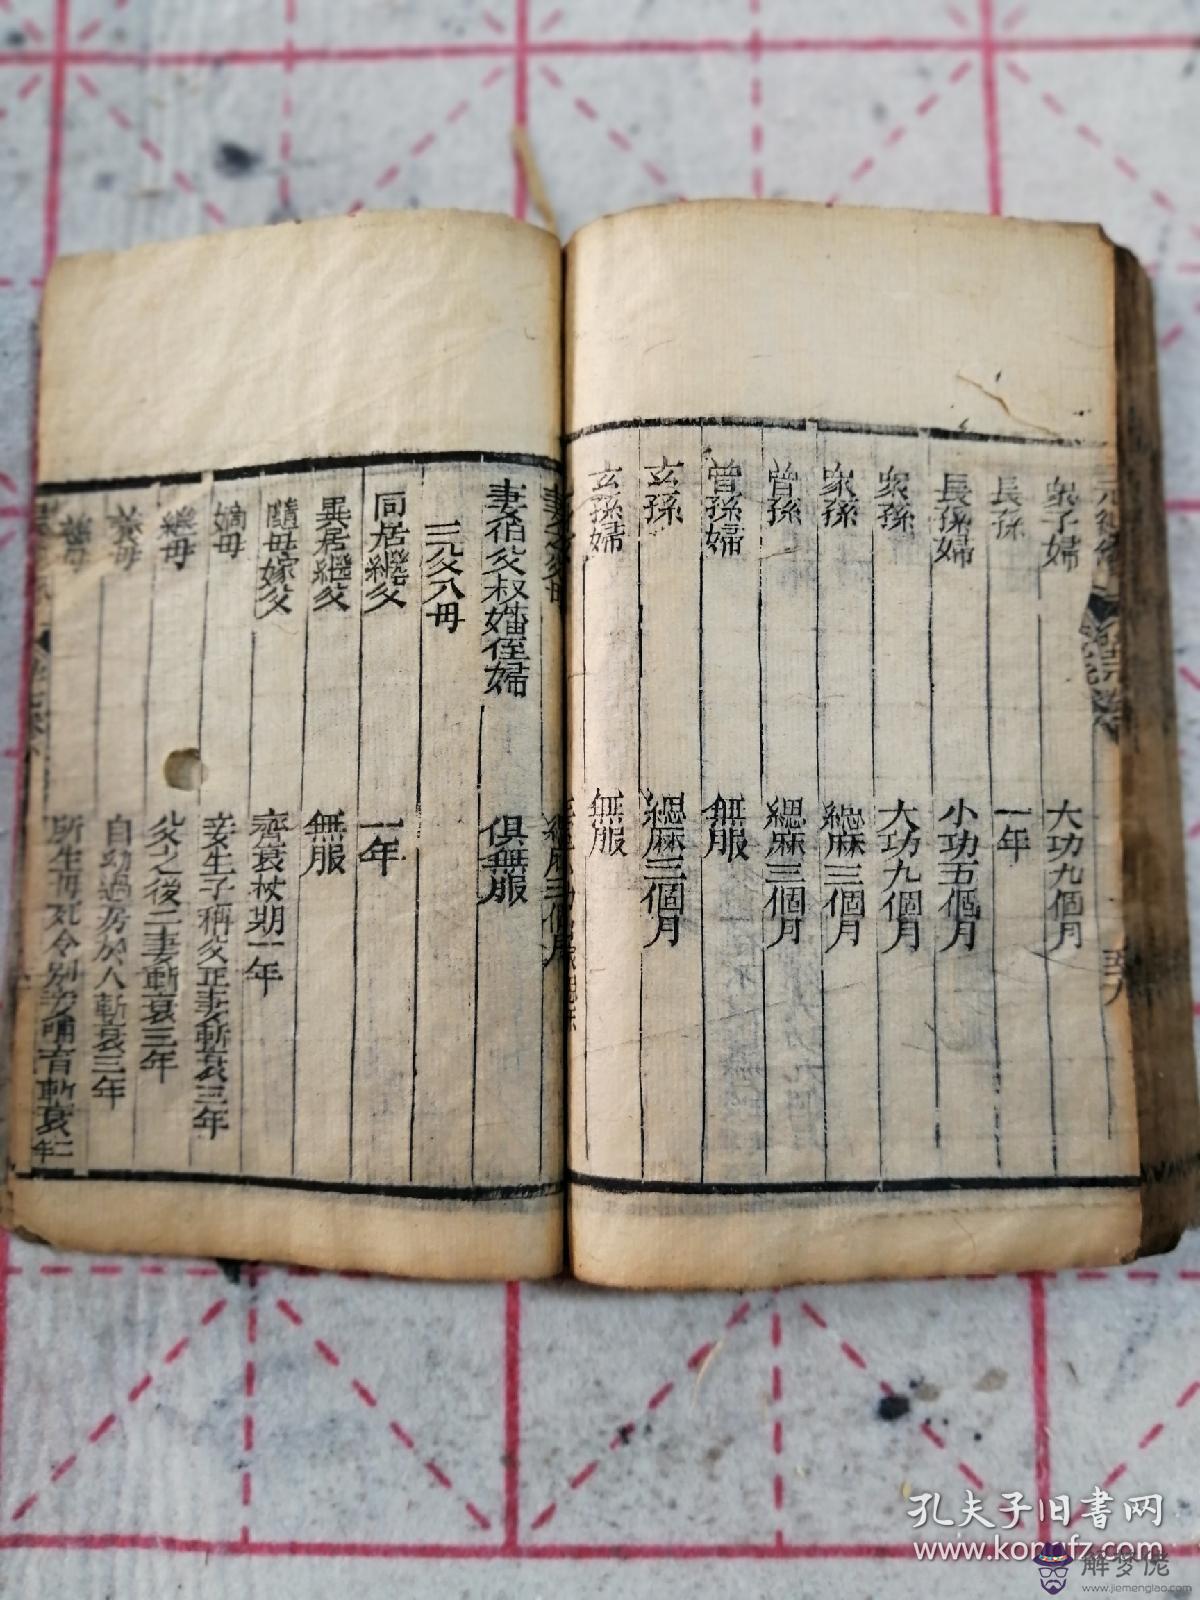 衆子婦　大功九個月
長孫　一年
長孫婦　小功五個月
衆孫　大功九個月
衆孫　緦麻三個月
曾孫　緦麻三個月
曾孫婦　無服
玄孫　緦麻三個月
玄孫婦　無服
妻之父母　緦麻三個月
妻伯父叔嬸侄婦　俱無服
三父八母
同居繼父　一年
異居繼父　無服
隨母嫁父　齊衰杖期一年
嫡母　妾生子稱父正妻斬衰三年
繼母　父之後二妻斬衰三年
養母　自幼過房於人斬衰三年
慈母　所生母死令別妾哺育斬衰三年
孔夫子旧书网
www.kongfz.com
解梦佬
www.jiemenglao.com